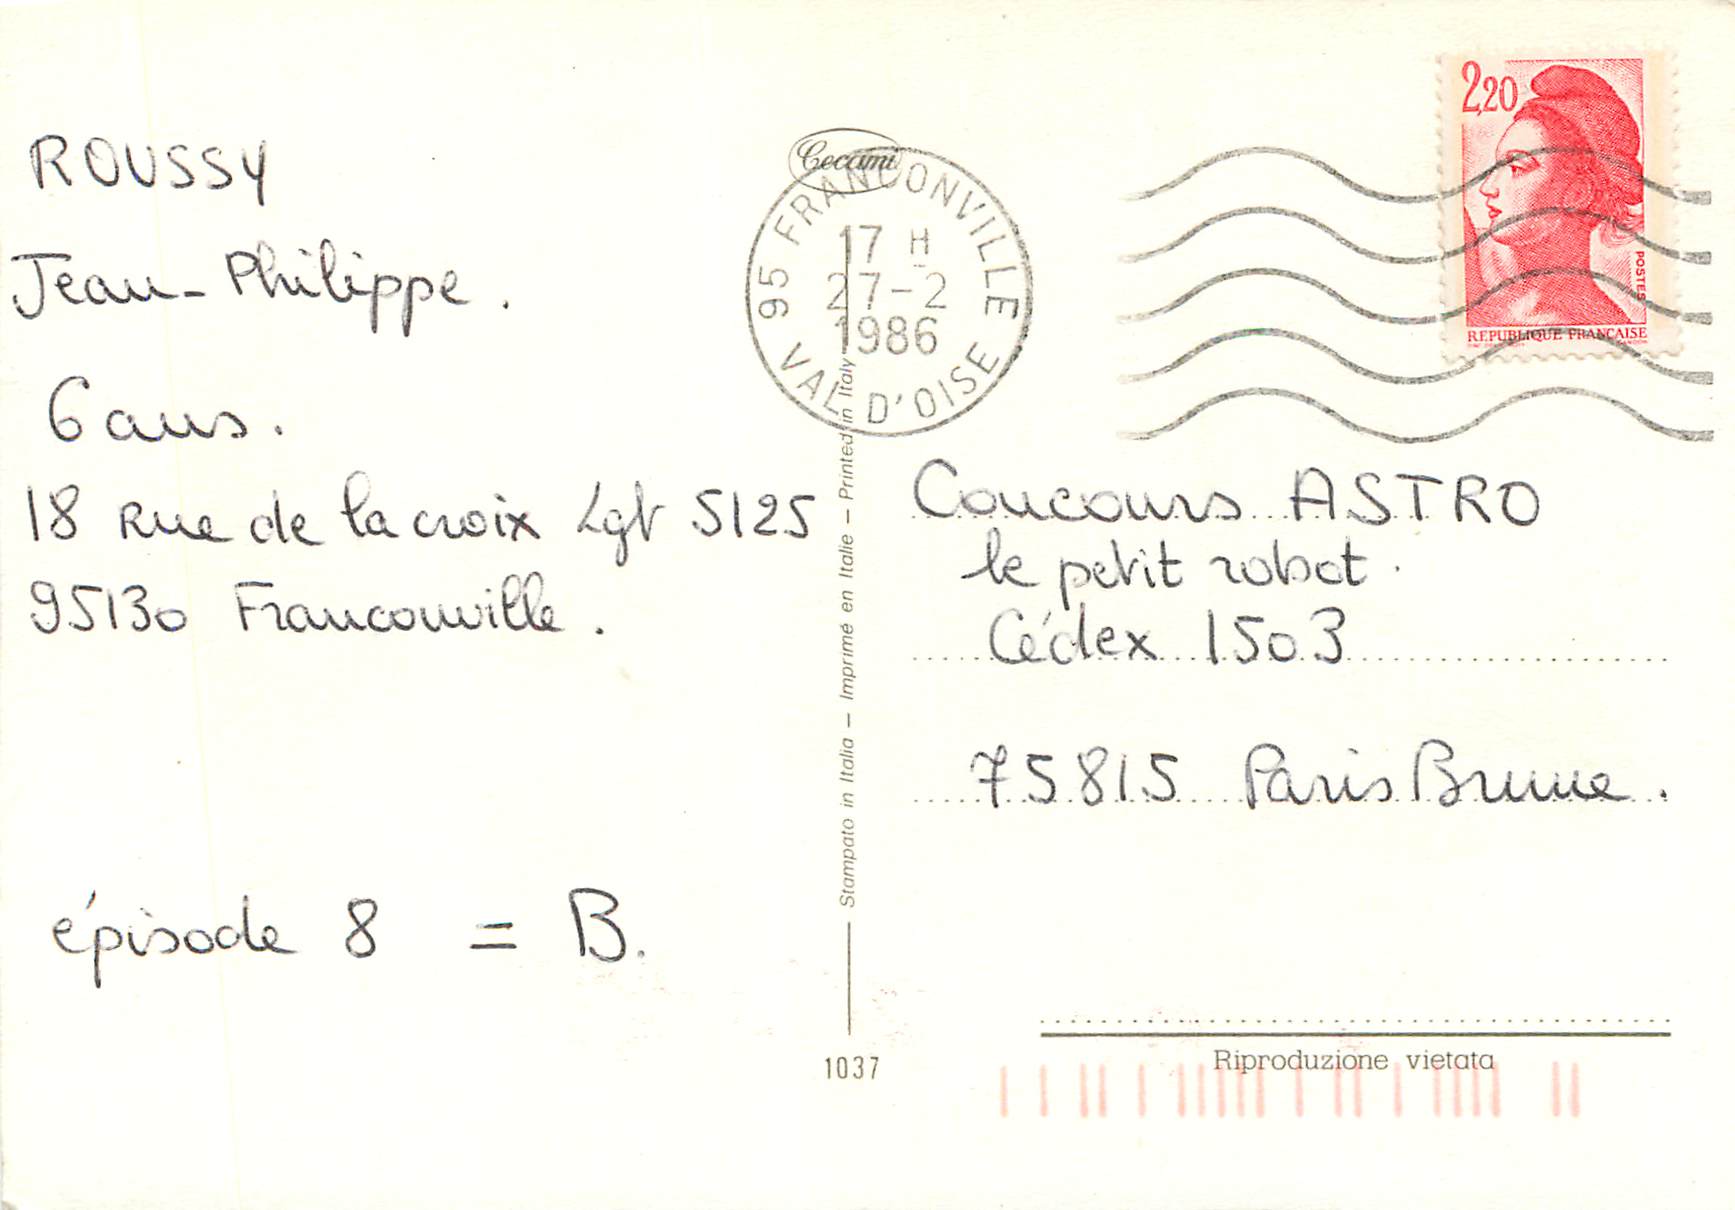 ROUSSY
Jean-Philippe.
6 ans.
18 Rue de la croix Lgt 5125
95130 Franconville.
épisode 8 = B.
Cecami
95 FRANCONVILLE
17 H
27-2
1986
VAL D'OISE
Stampato in Italia – Imprimé en Italie – Printed in Italy
1037
2,20
POSTES
REPUBLIQUE FRANCAISE
Concours ASTRO
le petit robot.
Cédex 1503
75815 Paris Brune.
Riproduzione vietata